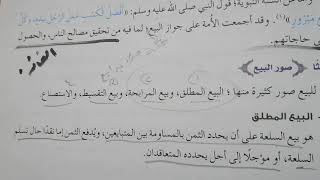 السنة النبوية؛ قول النبي صلى الله عليه وسلم: «أفضل الكسب عمل الرجل بيده، وكل
مبرور»(١). وقد أجمعت الأمة على جواز البيع؛ لما فيه من تحقيق مصالح الناس، والحصول
حاجاتهم.
صور البيع
للبيع صور كثيرة منها؛ البيع المطلق، وبيع المرابحة، وبيع التقسيط، والاستصناع.
البيع المطلق
هو بيع السلعة على أن يحدد الثمن بالمساومة بين المتبايعين، ويُدفع الثمن إما نقدًا حال تسلم
السلعة، أو مؤجلًا إلى أجل يحدده المتعاقدان.